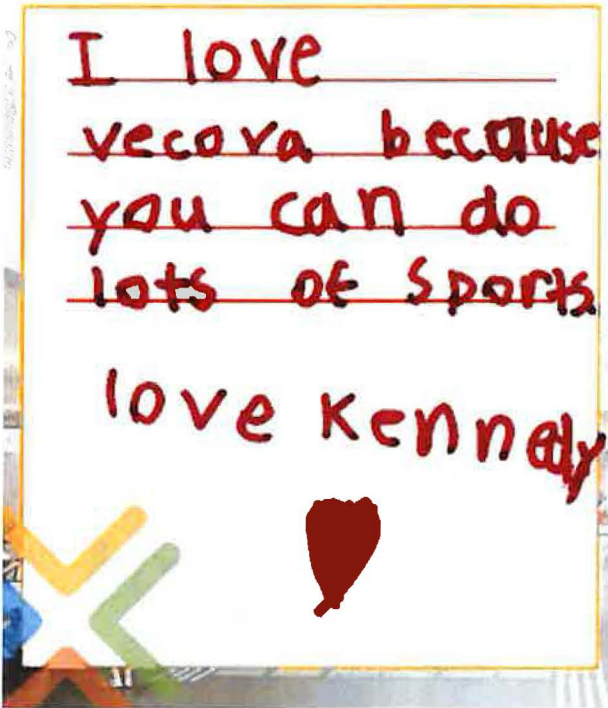 I love
vecova because
you can do
lots of sports
love Kennedy